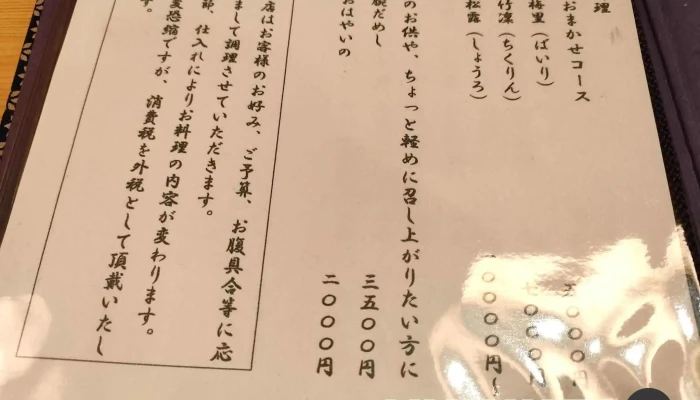 理
おまかせコース
梅里（ばいり） 五〇〇〇円
竹凜（ちくりん） 七〇〇〇円
松露（しょうろ） 〇〇〇〇円〜
のお供や、ちょっと軽めに召し上がりたい方に
腹だめし 三五〇〇円
おはやいの 二〇〇〇円
店はお客様のお好み、ご予算、お腹具合等に応
まして調理させていただきます。
節、仕入れによりお料理の内容が変わります。
変恐縮ですが、消費税を外税として頂戴いたし
す。